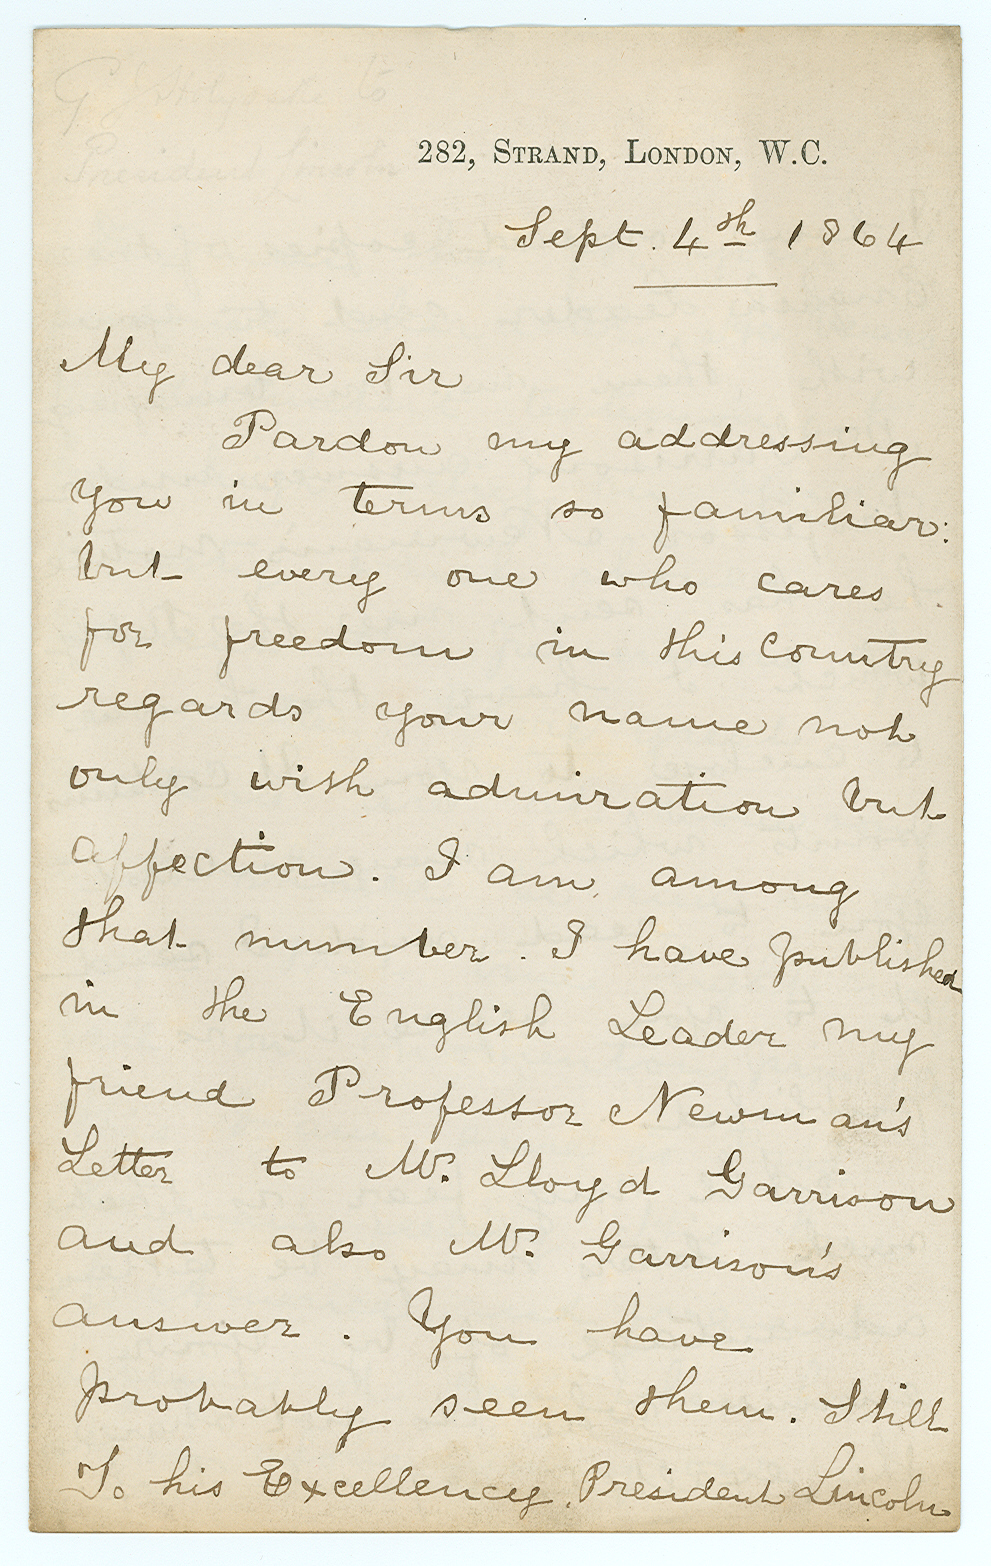 G J Holyoake to
President Lincoln
282, STRAND, LONDON, W.C.
Sept. 4th 1864
My dear Sir
Pardon my addressing
you in terms so familiar:
but every one who cares
for freedom in this Country
regards your name not
only with admiration but
affection. I am among
that number. I have published
in the English Leader my
friend Professor Newman's
Letter to Mr. Lloyd Garrison
and also Mr. Garrison's
answer. You have
probably seen them. Still
To his Excellency President Lincoln